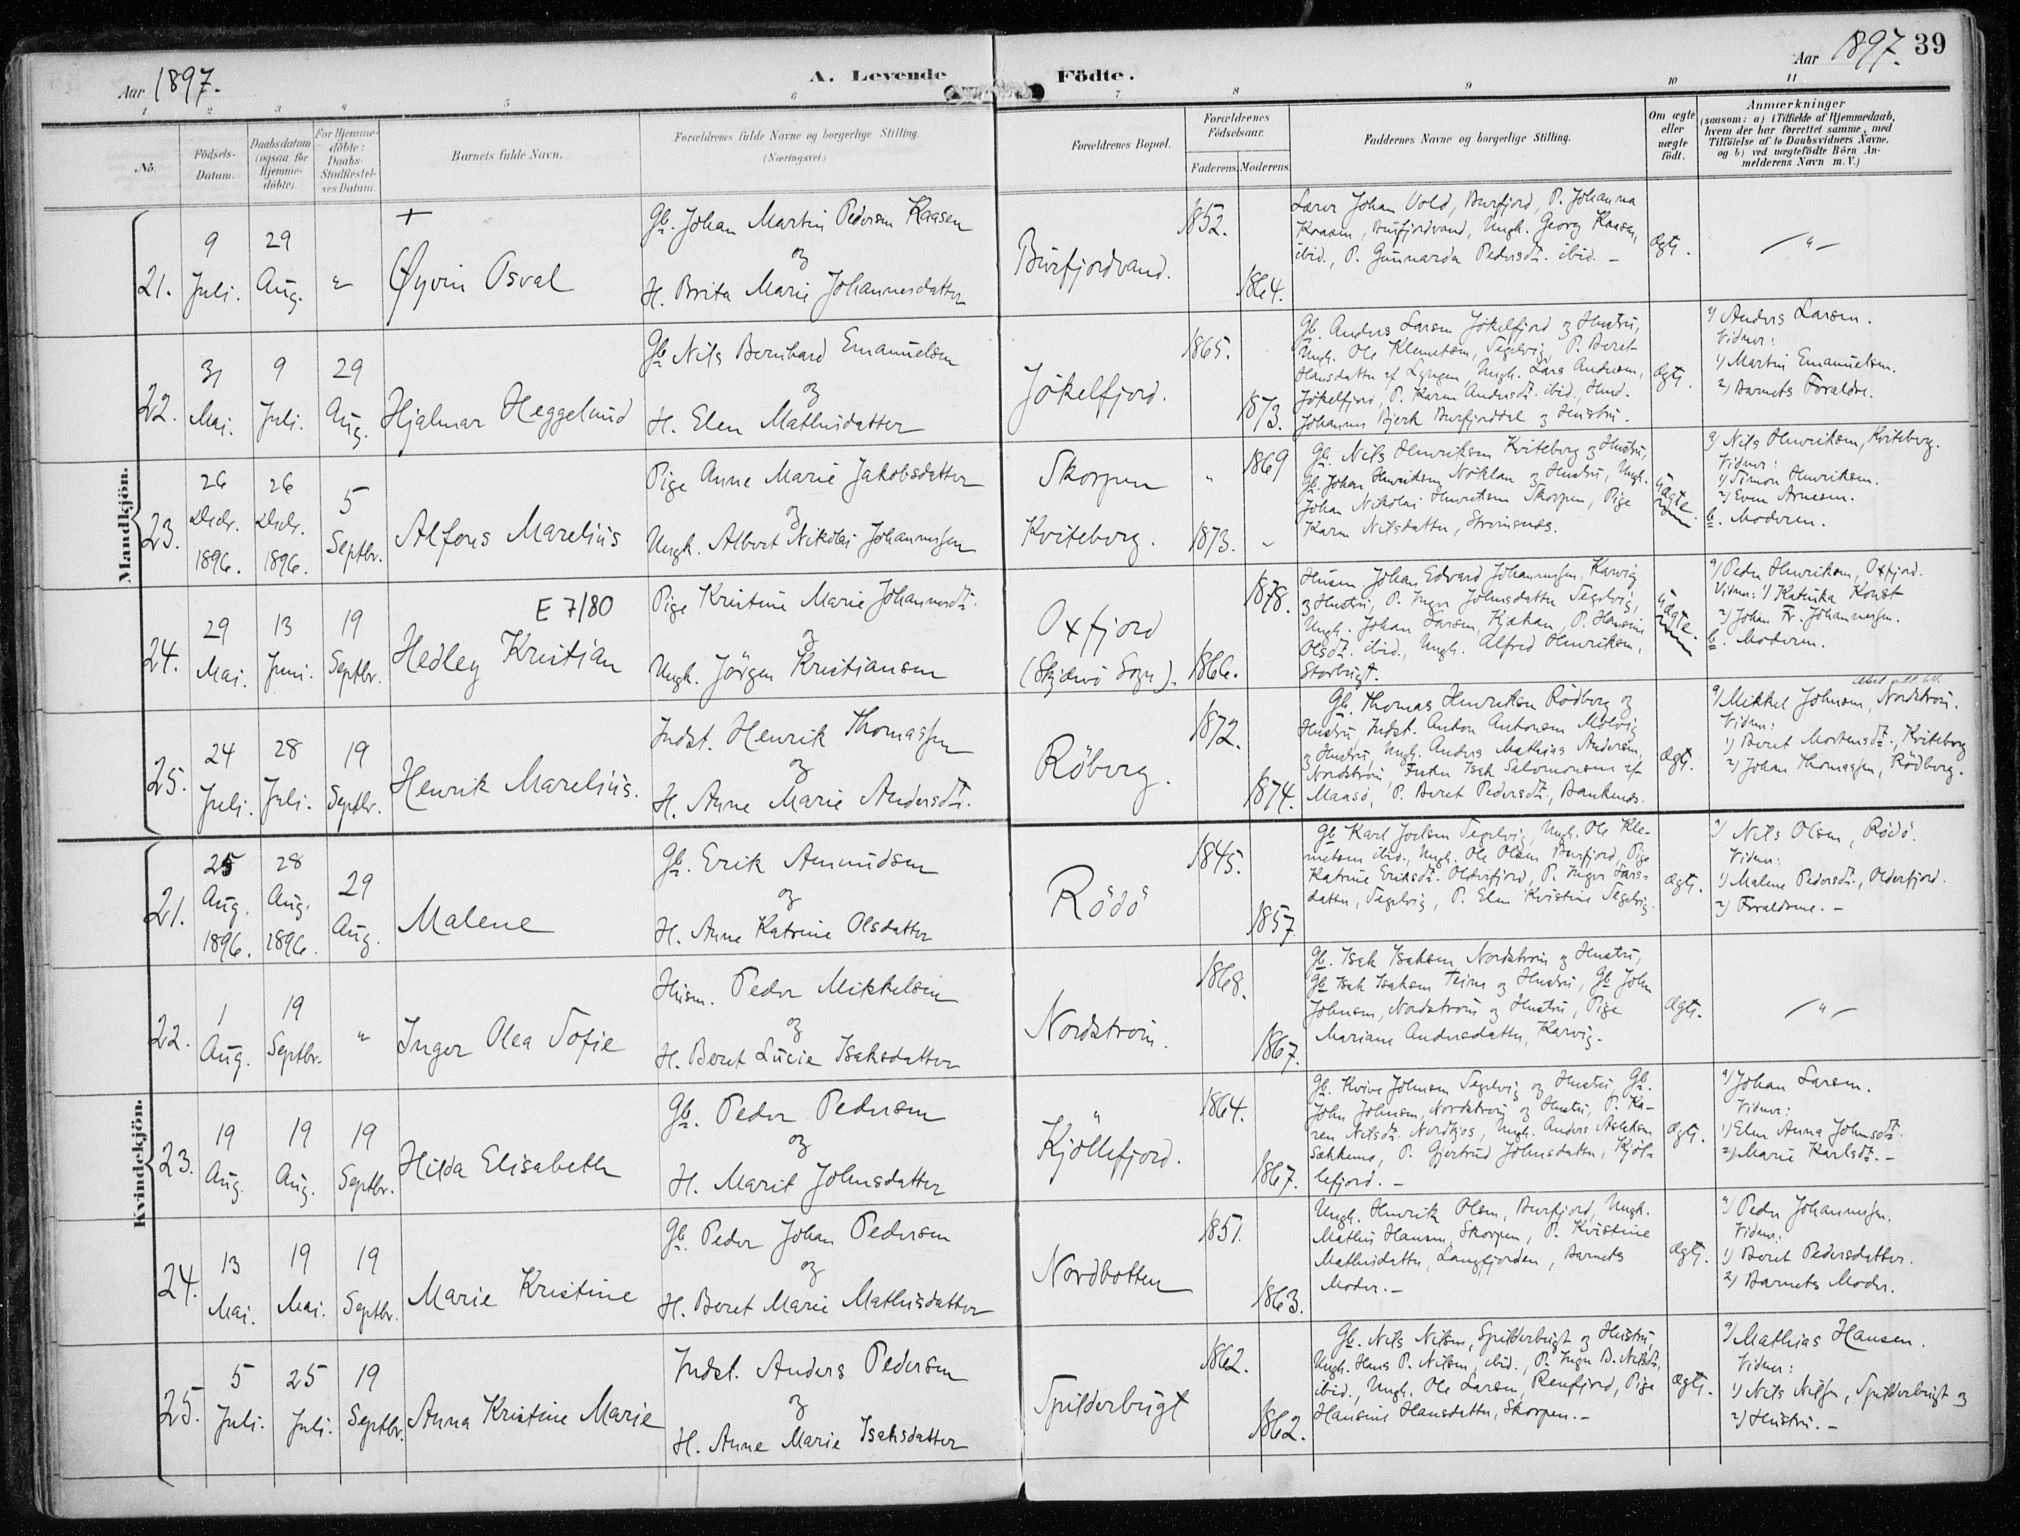 Aar 1897.
A. Levende Födte.
Aar 1897. 39
1 2 3 4 5 6 7 8 9 10 11
No.
Födsels-
Datum.
Daabsdatum
(ogsaa for
Hjemme-
döbte).
For Hjemme-
döbte:
Daabs-
Stadfæstel-
ses Datum.
Barnets fulde Navn.
Forældrenes fulde Navne og borgerlige Stilling.
(Næringsvei)
Forældrenes Bopæl.
Forældrenes
Födselsaar.
Faderens. Moderens.
Faddernes Navne og borgerlige Stilling.
Om ægte
eller
uægte
födt.
Anmærkninger
(saasom: a) i Tilfælde af Hjemmedaab,
hvem der har forrettet samme, med
Tilföielse af to Daabsvidners Navne.
og b) ved uægtefödte Börn An-
melderens Navn m. V.)
Mandkjön.
21.
9
Juli.
29
Aug.
"
+
Øyvin Osval
Gb. Johan Martin Pedersen Kaasen
og
H. Brita Marie Johannesdatter
Burfjordvand.
1852.
1864.
Lærer Johan Vold, Burfjord, P. Johanna
Kaasen, Burfjordvand, Ungk. Georg Kaasen,
ibid., P. Gunnarda Pedersdt. ibid. –
Ægte.
– " –
22.
31
Mai.
9
Juli.
29
Aug.
Hjalmar Heggelund
Gb. Nils Bernhard Emanuelsen
og
H. Elen Mathisdatter
Jökelfjord.
1865.
1873.
Gb. Anders Larsen Jökelfjord og Hustru,
Ungk. Ole Klemetsen, Tegelvig, P. Beret
Hansdatter af Lyngen, Ungk. Lars Andersen,
Jökelfjord, P. Karen Andersdt. ibid.,
Johannes Bjerk Burfjorddal og Hustru.
Ægte.
a) Anders Larsen.
Vidner:
1) Martin Emanuelsen.
2) Barnets Forældre.
23.
26
Decbr.
1896.
26
Decbr.
1896.
5
Septbr.
Alfons Marelius
Pige Anne Marie Jakobsdatter
og
Ungk. Albert Nikolai Johannessen
Skorpen
Kviteberg.
" 1869
1873. "
Gb. Nils Henriksen Kviteberg og Hustru,
Gb. Johan Henriksen Noklan og Hustru, Ungk.
Johan Nikolai Henriksen Skorpen, Pige
Karen Nilsdatter, Strömsnes.
uægte.
a) Nils Henriksen, Kviteberg.
Vidner:
1) Simon Henriksen.
2) Even Arnesen.
b. Moderen.
24.
29
Mai.
13
Juni.
19
Septbr.
E 7/80
Hedley Kristian
Pige Kristine Marie Johannesdt.
og
Ungk. Jörgen Kristiansen
Oxfjord
(Skjervö Sogn).
1878.
1866.
Husm. Johan Edvard Johannessen, Karvig
og Hustru, P. Inger Johnsdatter Tegelvig,
Ungk. Johan Larsen, Kjækan, P. Hansine
Olsdt. ibid., Ungk. Alfred Henriksen,
Storbugt.
uægte.
a) Peder Henriksen, Oxfjord.
Vidner: 1) Katrika Konst
2) Johan Fr. Johannessen.
b. Moderen.
25.
24
Juli.
28
Juli.
19
Septbr.
Henrik Marelius.
Indst. Henrik Thomassen
og
H. Anne Marie Andersdt.
Röberg.
1872.
1874.
Gb. Thomas Henriksen Rödberg og
Hustru, Indst. Anton Antonsen Molvig
og Hustru, Ungk. Anders Mathias Andersen,
Nordström, Isak Salomonsen af
Maasö, P. Beret Pedersdt., Bankenes.
Ægte.
a) Mikkel Johnsen, Nordström.
Vidner:
1) Beret Mortensdt., Kviteberg
2) Johan Thomassen, Rödberg.
Kvindekjön.
21.
25
Aug.
1896.
28
Aug.
1896.
29
Aug.
Malene
Gb. Erik Amundsen
og
H. Anne Katrine Olsdatter
Rödö
1845.
1857.
Gb. Karl Joelsen Tegelvig, Ungk. Ole Kle-
metsen ibid., Ungk. Ole Olsen Burfjord, Pige
Katrine Eriksdt. Olderfjord, P. Inger Lars-
datter, Tegelvig, P. Elen Kristine Tegelvig.
Ægte.
a) Nils Olsen, Rödö.
Vidner:
1) Malene Pedersdt., Olderfjord.
2) Forældrene. –
22.
1
Aug.
19
Septbr.
"
Inger Olea Sofie
Husm. Peder Mikkelsen
og
H. Beret Lucie Isaksdatter
Nordström.
1868.
1867.
Gb. Isak Isaksen Nordström og Hustru,
Gb. Isak Isaksen Teines og Hustru, Gb. John
Johnsen, Nordström og Hustru, Pige
Mariane Andersdatter, Karvig.
Ægte.
– " –
23.
19
Aug.
19
Aug.
19
Septbr.
Hilda Elisabeth
Gb. Peder Pedersen
og
H. Marit Johnsdatter
Kjöllefjord.
1864.
1867.
Gb. Kvive Johnsen Tegelvig og Hustru, Gb.
John Johnsen, Nordström og Hustru, P. Ka-
ren Nilsdt. Nordkjos, Ungk. Anders Aslaksen
Sakkemo, P. Gjertrud Johnsdatter, Kjöl-
lefjord. –
Ægte.
a) Johan Larsen.
Vidner:
1) Elen Anna Johnsdt.
2) Marie Karlsdt. –
24.
13
Mai.
19
Mai.
19
Septbr.
Marie Kristine
Gb. Peder Johan Pedersen
og
H. Beret Marie Mathisdatter
Nordbotten
1851.
1863.
Ungk. Henrik Olsen, Burfjord, Ungk.
Mathis Hansen, Skorpen, P. Kristine
Mathisdatter, Langfjorden, Barnets
Moder. –
Ægte.
a) Peder Johannessen.
Vidner:
1) Beret Pedersdatter.
2) Barnets Moder.
25.
5
Juli.
25
Juli.
19
Septbr.
Anna Kristine Marie
Indst. Anders Pedersen
og
H. Anne Marie Isaksdatter
Spilderbugt
1862.
1862.
Gb. Nils Nilsen, Spilderbugt og Hustru
Ungk. Hans P. Nilsen, ibid., P. Inger B. Nilsdt.
ibid., Ungk. Ole Larsen, Renfjord, Pige
Hansine Hansdatter, Skorpen. –
Ægte.
a) Mathias Hansen.
Vidner:
1) Nils Nilsen, Spilderbugt og
2) Hustru. –